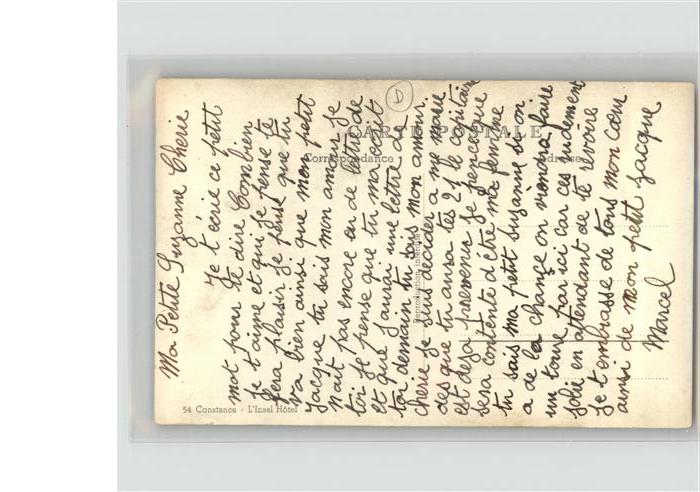 Ma Petite Suzanne Cherie
Je t'écrie ce petit
mot pour te dire Combien
Je t'aime et qui je pense te
fera plaisir je pense que tu
va bien ainsi que mon petit
Jacque tu sais mon amour je
n'ait pas encore eu de lettre de
toi je pense que tu m'a écrit
et que j'aurai une lettre de
toi demain tu sais mon amour
cherie je suis decider a me marie
des que tu aura tes 21 le capitaine
est deja prevenu je pense que
sera contente d'être ma femme
tu sais ma petit suzanne si on
a de la change on viendra faire
un tour par ici car ces rudement
jolie en attendant de te revoire
Je t'embrasse de tous mon cœur
ainsi de mon petit Jacque
Marcel
D
CARTE POSTALE
Correspondance
Adresse
Reproduction interdite
54 Constance - L'Insel Hôtel